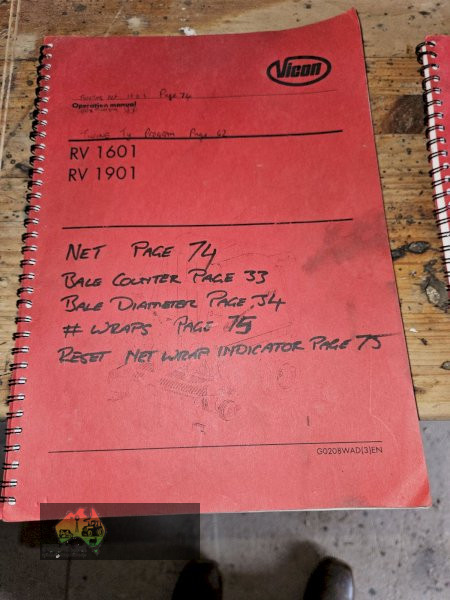 Vicon
Page 74
Operation manual
Program Page 62
RV 1601
RV 1901
NET PAGE 74
BALE COUNTER PAGE 33
BALE DIAMETER PAGE 34
# WRAPS PAGE 75
RESET NET WRAP INDICATOR PAGE 75
G020BWAD(3)EN